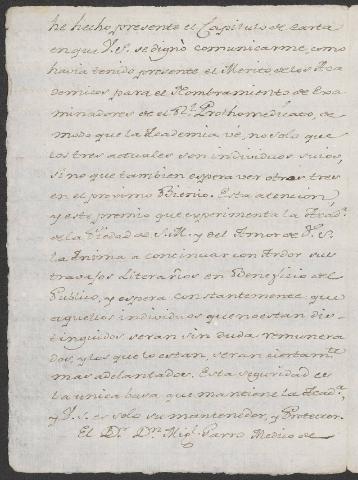 he hecho presente el Capitulo de Carta
en que V. S. se dignó comunicarme, como
havia tenido presente el Merito de los Aca-
demicos para el Nombramiento de Exa-
minadores de el Rl. Prothomedicato, de
modo que la Academia vé, no solo que
los tres actuales son individuos suios,
sino que tambien espera ver otros tres
en el proximo Bienio. Esta atencion,
y este premio que experimenta la Acada.
de la Piedad de S. M. y del Amor de V. S.
la Anima a continuar con Ardor sus
travajos Literarios en Beneficio del
Publico, y espera constantemente que
aquellos individuos que no estan dis-
tinguidos seran sin duda remunera
dos, y los que lo estan, seran ciertamte.
mas adelantados. Esta seguridad es
la unica basa que mantiene la Acada.
y V. S. es solo su mantenedor, y Protector.
El Dr. Dn. Migl. Parro Medico de